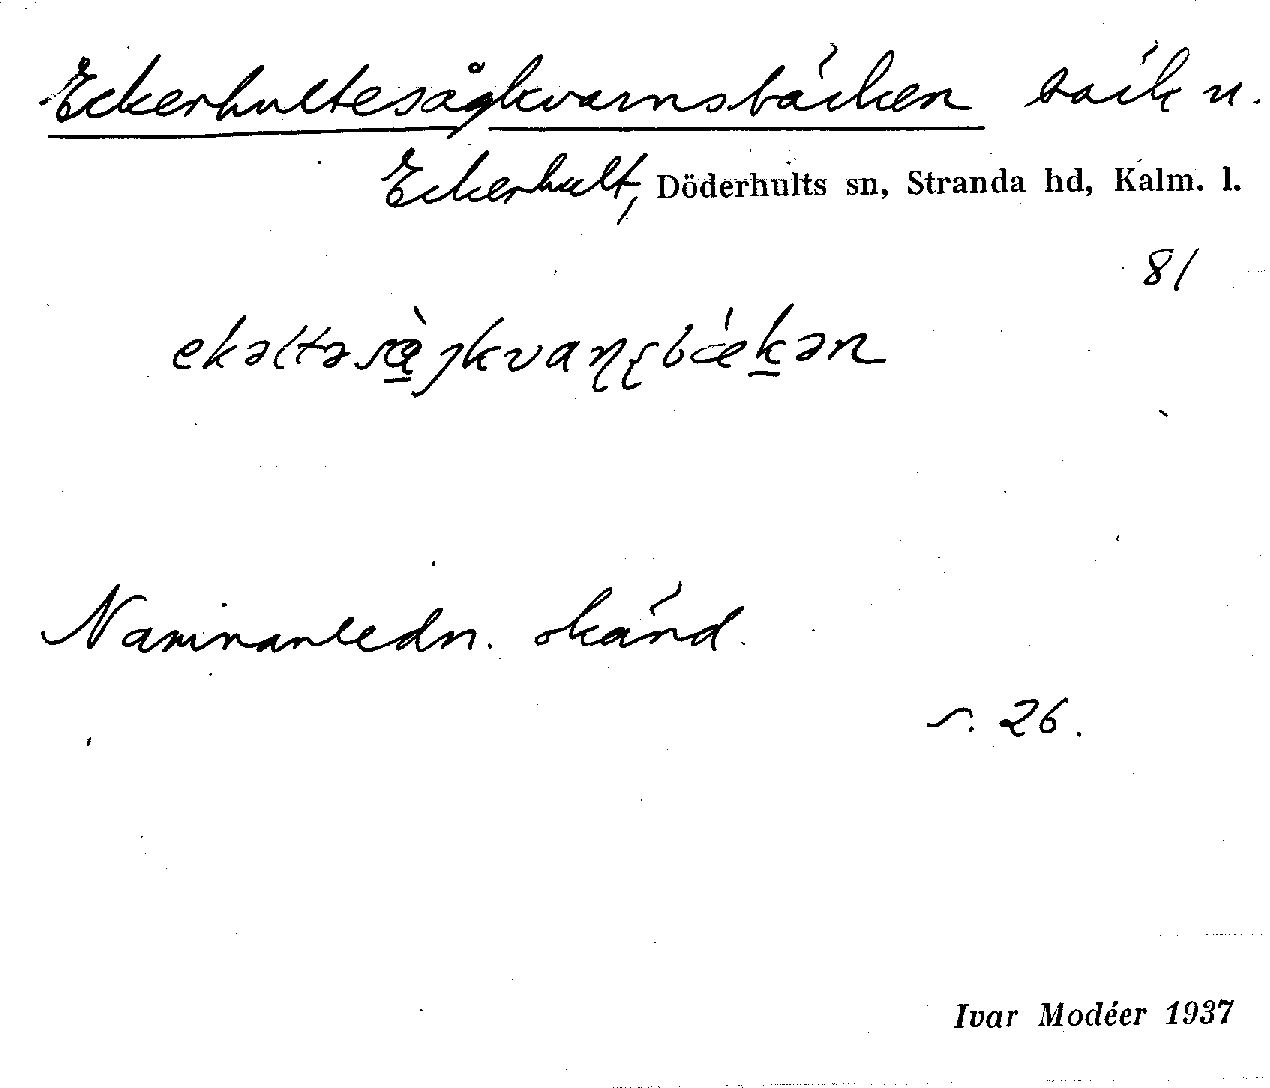 Eckerhultesågkvarnsbäcken bäck n.
Eckerhult, Döderhults sn, Stranda hd, Kalm. l.
81
Namnanledn. okänd.
s. 26.
Ivar Modéer 1937